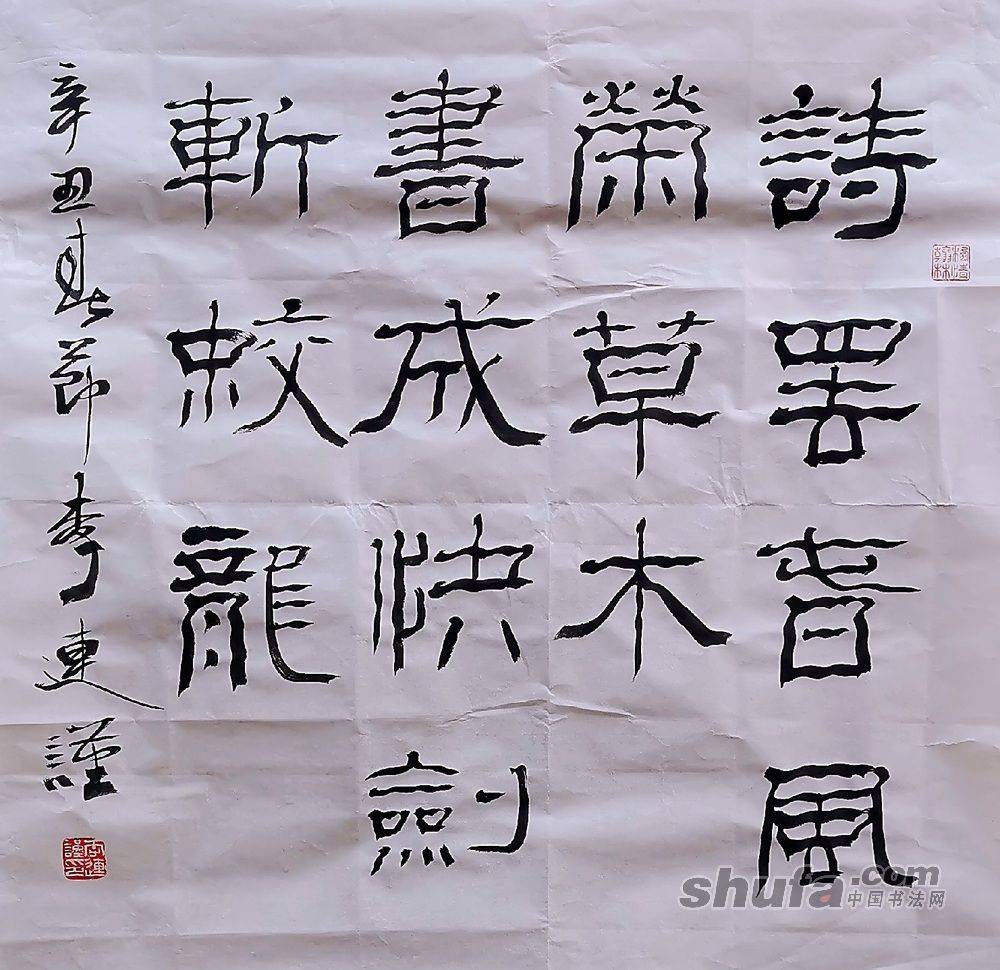 詩罢旾風
榮草木
書成快劍
斬蛟龍
辛丑春節李連謹
shufa.com
中国书法网